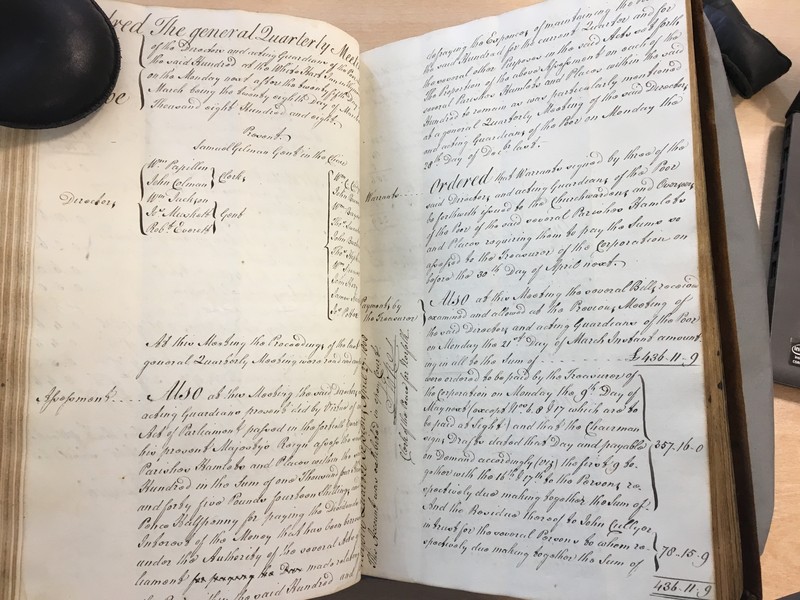 The general Quarterly Meeting
of the Directors and acting Guardians of the Poor
the said Hundred at the White Hart Inn
on the Monday next after the twenty fifth Day of
March being the twenty eighth Day of March
Thousand eight Hundred and eight
Present
Samuel Gilman Gent in the Chair
Directors
Wm Papillon
John Colman
Clerks
Wm Jackson
Robt Everett
Gent
At this Meeting the Proceedings of the last
general Quarterly Meeting were read and
Assessment
Also at this Meeting the said Directors
acting Guardians present did by Virtue of an
Act of Parliament passed in the fortieth
his present Majesty's Reign assess the
Parishes Hamlets and Places within the
Hundred in the Sum of one Thousand
and forty five Pounds fourteen Shillings
Pence Halfpenny for paying the
Interest of the Money that has been borrowed
under the Authority of the several Acts
liament made relative
the said Hundred and
defraying the Expences of maintaining the
the said Hundred for the current Quarter and for
the several other Purposes in the said Acts set forth
The Proportion of the above Assessment on each of the
several Parishes Hamlets and Places within the said
Hundred to remain as was particularly mentioned
at a general Quarterly Meeting of the said Directors
and acting Guardians of the Poor on Monday the
28th Day of Decr last.
Warrants
Ordered that Warrants signed by three of the
said Directors and acting Guardians of the Poor
be forthwith issued to the Churchwardens and Overseers
of the Poor of the said several Parishes Hamlets
and Places requiring them to pay the Sums so
assessed to the Treasurer of the Corporation on
before the 30th Day of April next.
Payments by
the Treasurer
Also at this Meeting the several Bills received
examined and allowed at the Previous Meeting of
the said Directors and acting Guardians of the Poor
on Monday the 21st Day of March Instant amount
ing in all to the Sum of £436-11-9
were ordered to be paid by the Treasurer of
the Corporation on Monday the 9th Day of
May next (except Nos 6. 8 & 17 which are to
be paid at sight) and that the Chairman
sign Drafts dated that Day and payable
on Demand accordingly (viz) the first 9 to-
gether with the 16th & 17th to the Persons re-
spectively due making together the Sum of
357-16-0
And the Residue thereof to John Cullyer
in trust for the several Persons to whom re-
spectively due making together the Sum of
78-15-9
436-11-9
Clerk of the Peace for Norfolk